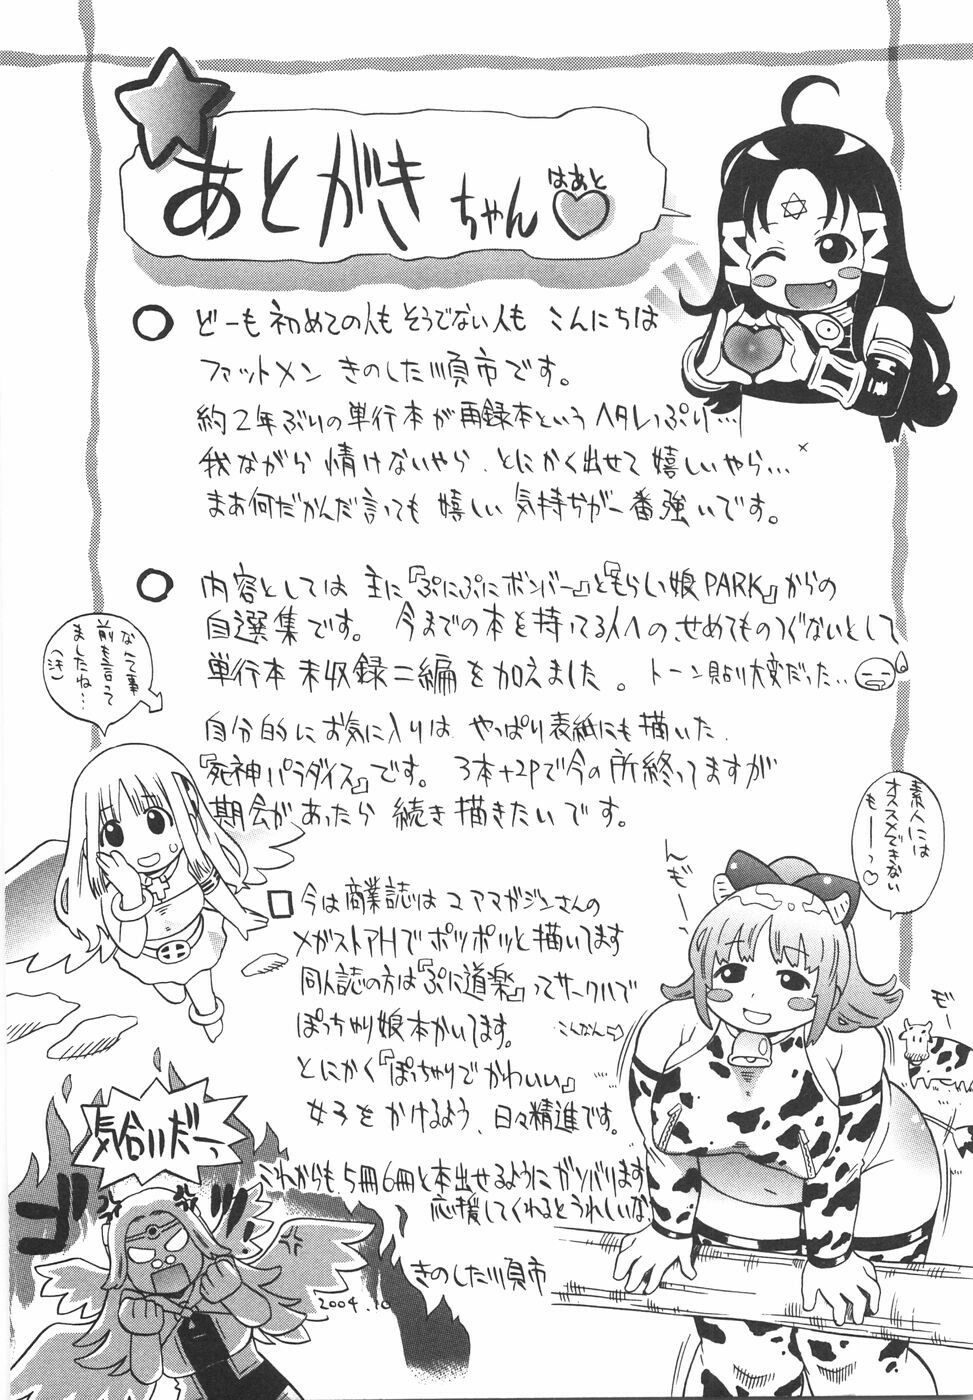 あとがきちゃん♡
はあと
○ どーも初めての人もそうでない人も こんにちは
ファットメン きのした順市です。
約2年ぶりの単行本が再録本というヘタレっぷり…
我ながら情けないやら、とにかく出せて嬉しいやら…
まあ何だかんだ言っても嬉しい気持ちが一番強いです。
○ 内容としては主に『ぷにぷにボンバー』と『もらい娘PARK』からの
自選集です。今までの本を持ってる人への、せめてものつぐないとして
単行本未収録二編を加えました。トーン貼り大変だった‥
自分的にお気に入りは やっぱり表紙にも描いた
『死神パラダイス』です。3本+2Pで今の所終ってますが
期会があったら続き描きたいです。
なんて事
前も言って
ましたね…
(汗)
□ 今は商業誌はコアマガジンさんの
メガストアHでポツポツと描いてます
同人誌の方は『ぷに道楽』ってサークルで
ぽっちゃり娘本かいてます。
こんなん
とにかく『ぽっちゃりでかわいい』
女子をかけるよう、日々精進です。
これからも5冊6冊と本出せるようにガンバります
応援してくれるとうれしいな
きのした順市
2004.10
素人には
オススメできない
もーーっ♡
んぎー
モ〜
気合いだーっ
ゴゴ